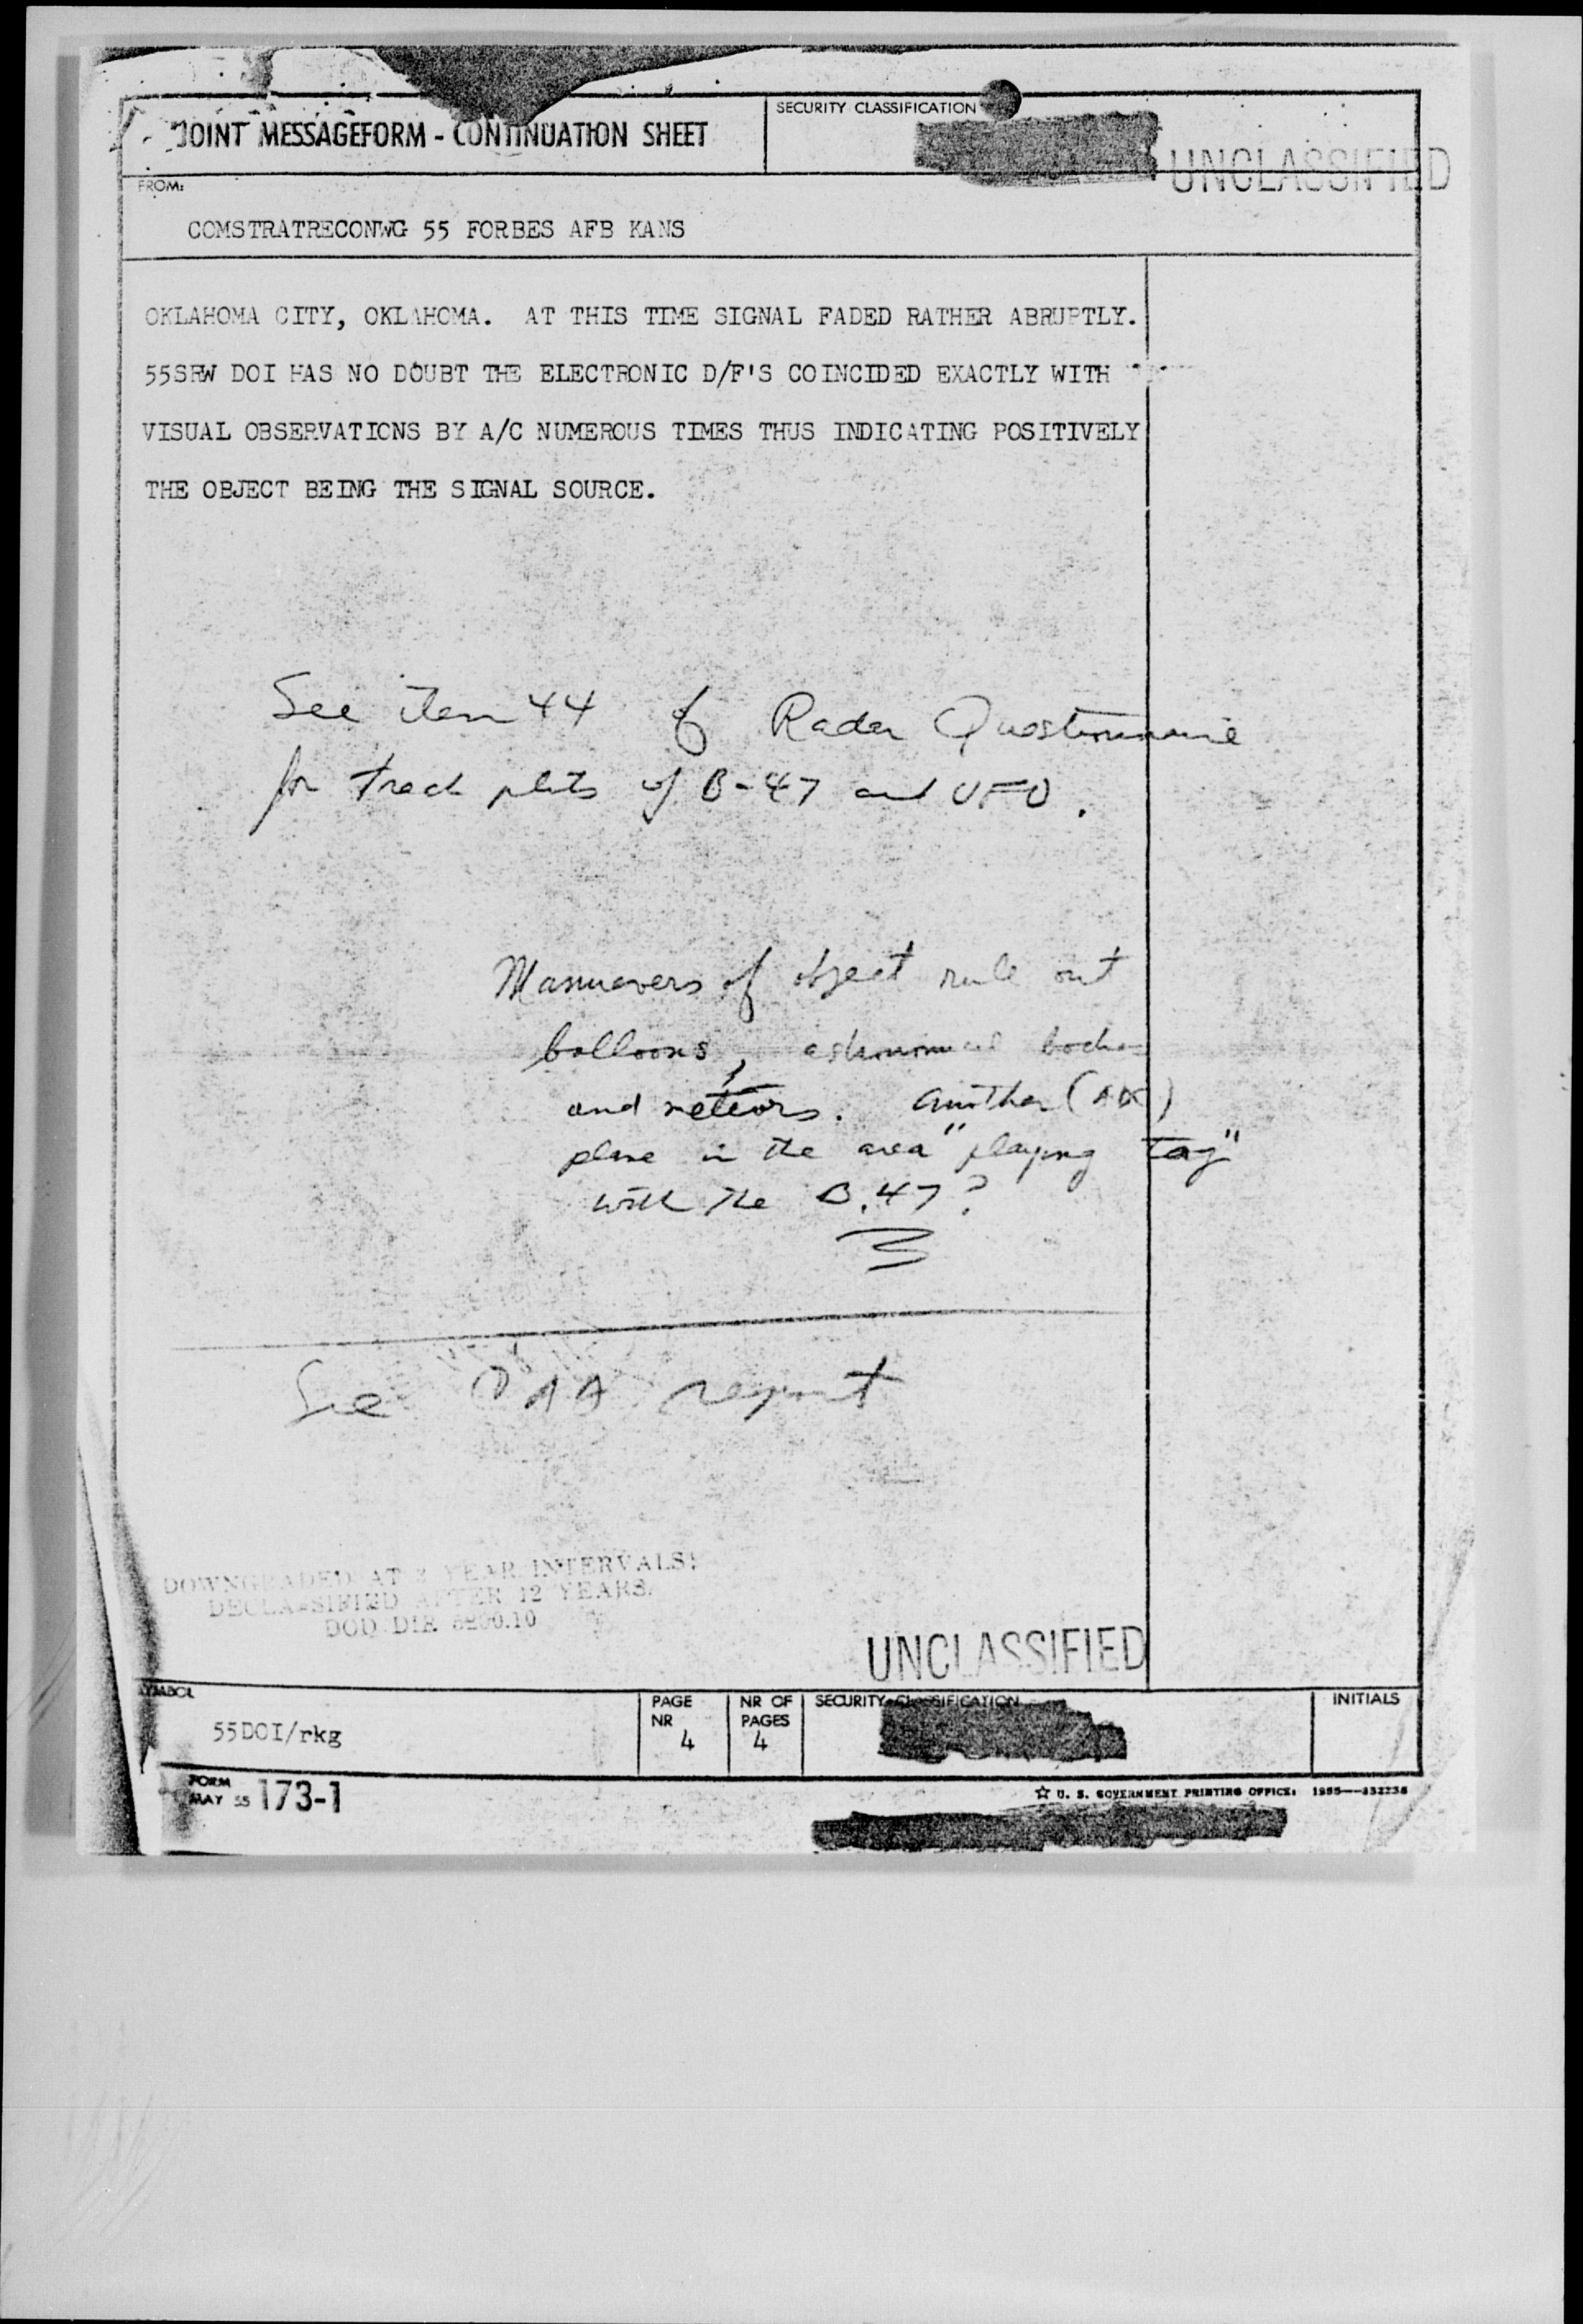 JOINT MESSAGEFORM - CONTINUATION SHEET
SECURITY CLASSIFICATION
UNCLASSIFIED
FROM:
COMSTRATRECONWG 55 FORBES AFB KANS
OKLAHOMA CITY, OKLAHOMA. AT THIS TIME SIGNAL FADED RATHER ABRUPTLY.
55SRW DOI HAS NO DOUBT THE ELECTRONIC D/F'S COINCIDED EXACTLY WITH
VISUAL OBSERVATIONS BY A/C NUMEROUS TIMES THUS INDICATING POSITIVELY
THE OBJECT BEING THE SIGNAL SOURCE.
See item 44 of Radar Questionnaire
for track plots of B-47 and UFO.
Manuevers of object rule out
balloons, astronomical bodies
and meteors. Another
plane in the area "playing tag"
with the B.47?
See report
DOWNGRADED AT 3 YEAR INTERVALS;
DECLASSIFIED AFTER 12 YEARS.
DOD DIR 5200.10
UNCLASSIFIED
SYMBOL
55DOI/rkg
PAGE NR 4
NR OF PAGES 4
SECURITY CLASSIFICATION
INITIALS
FORM MAY 55 173-1
☆ U. S. GOVERNMENT PRINTING OFFICE: 1955